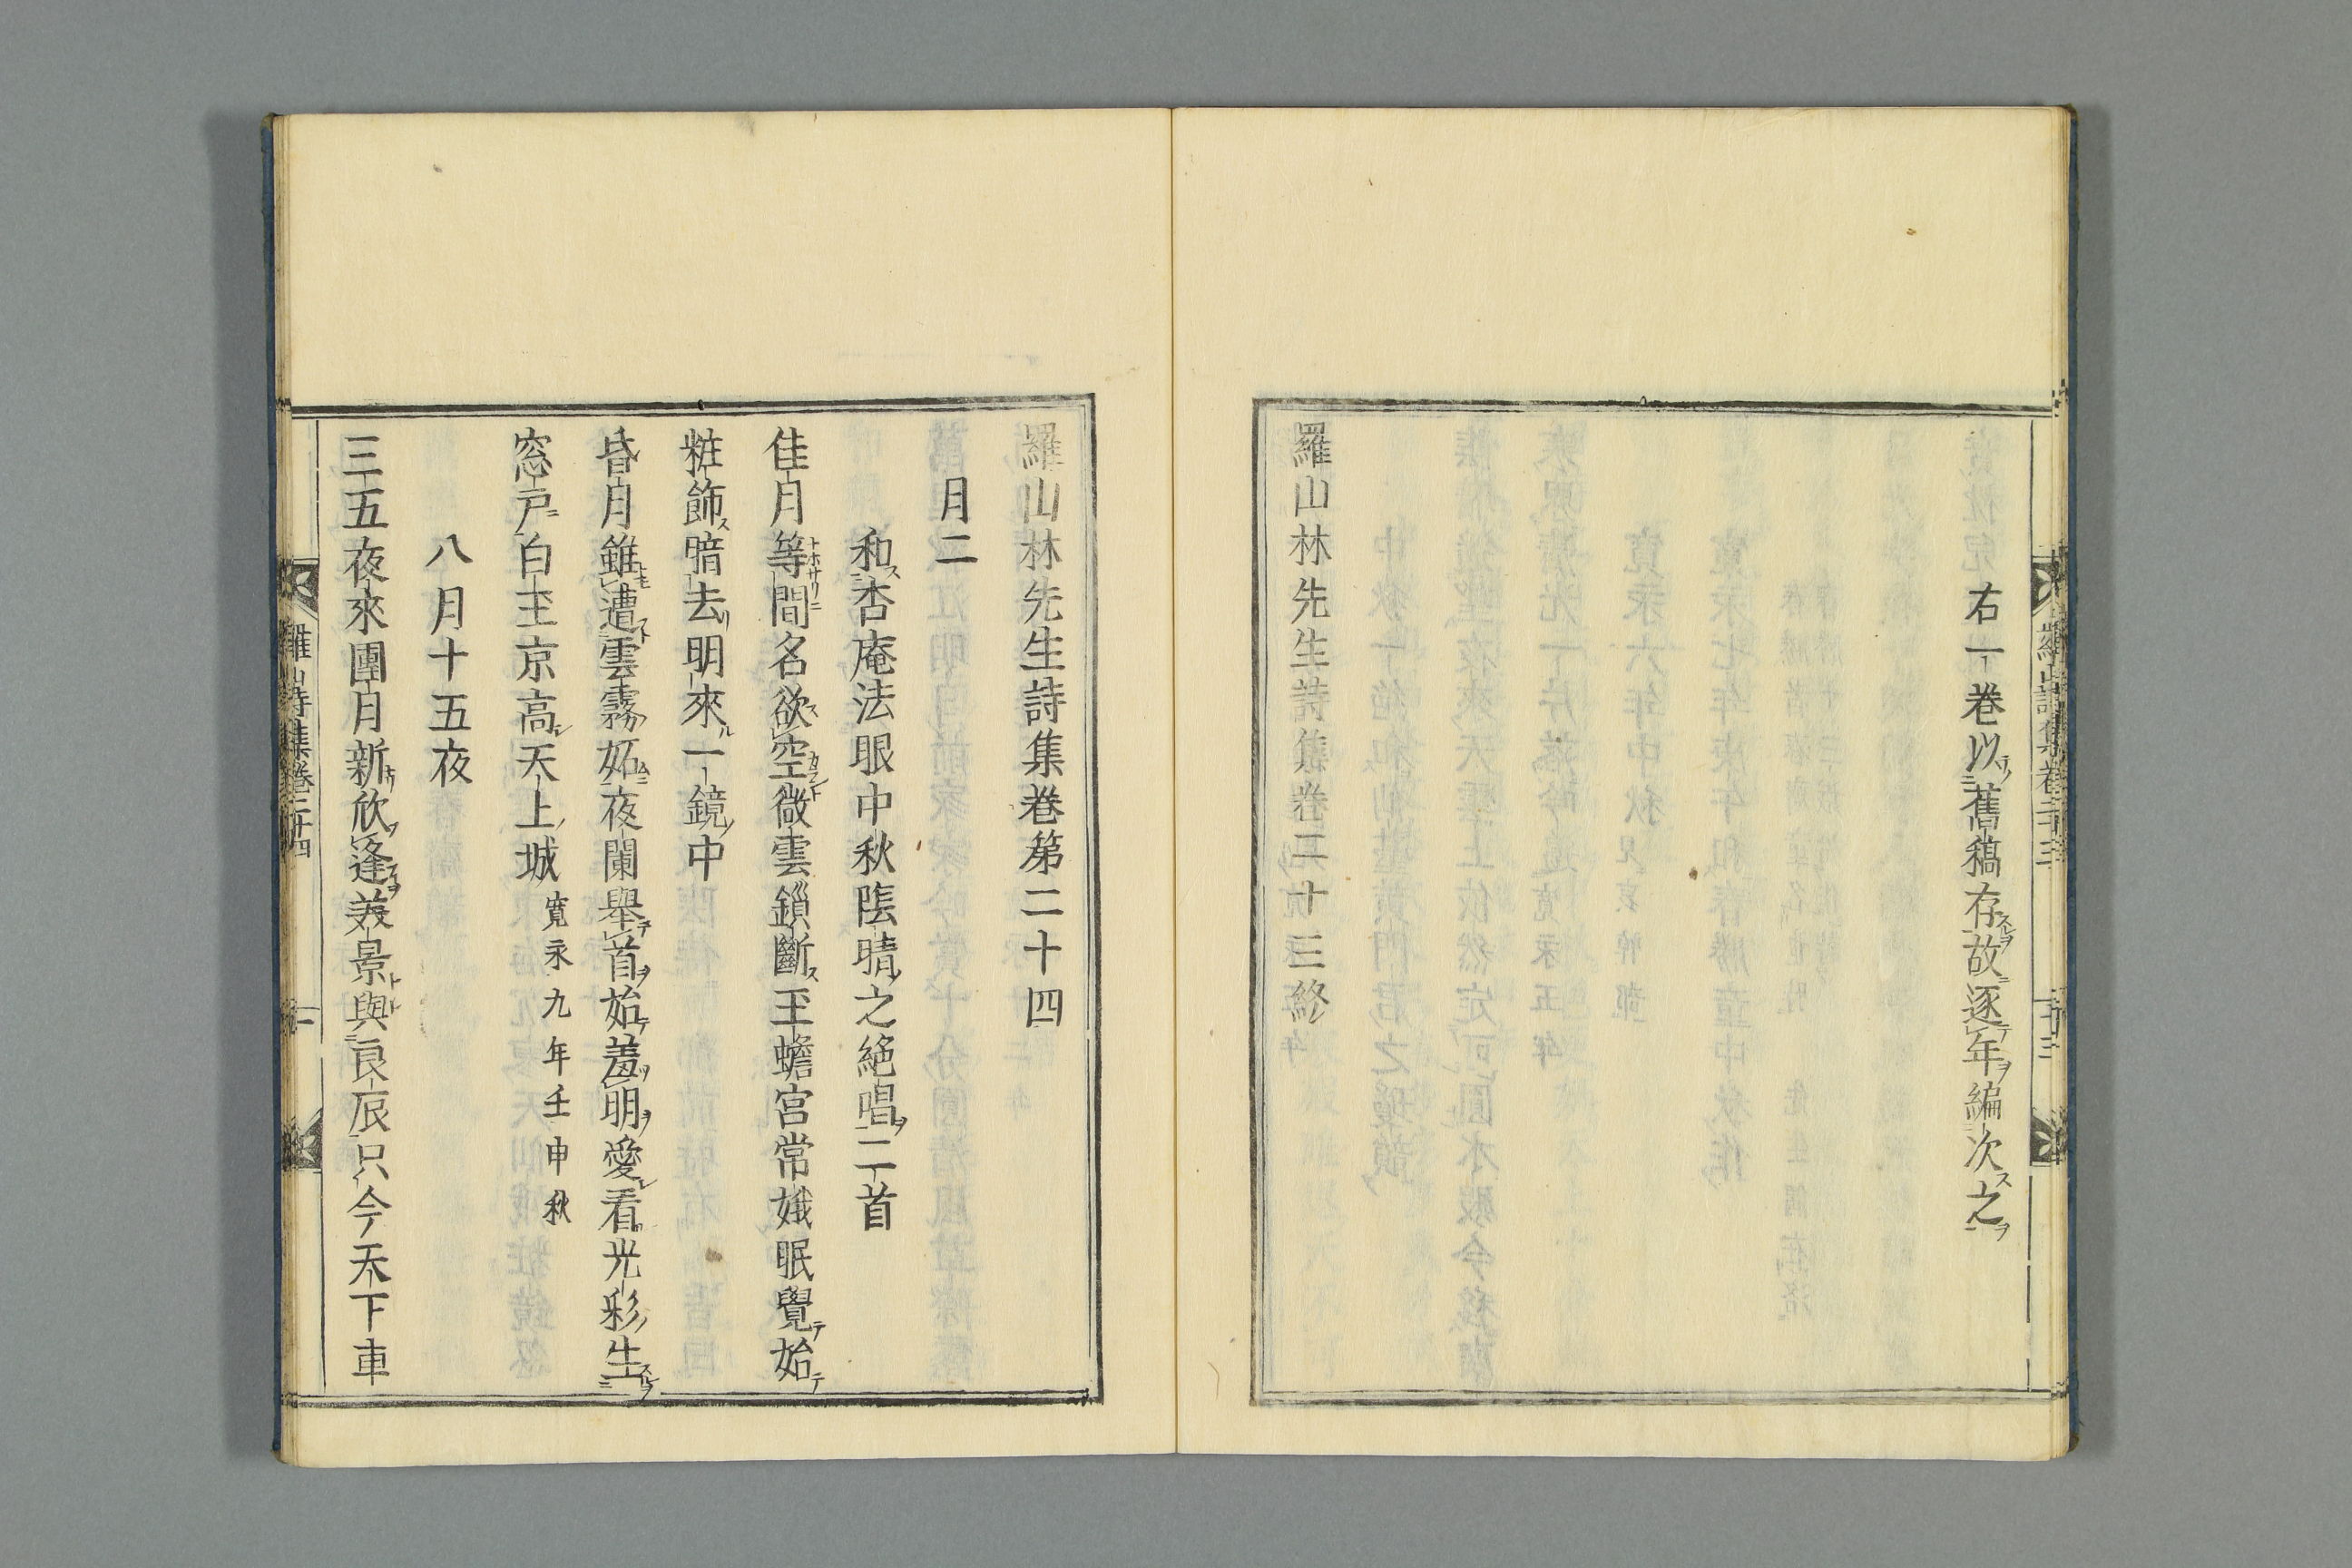 右一卷以舊稿存故逐年編次之
羅山林先生詩集卷二十三終
羅山林先生詩集卷第二十四
月二
和杏庵法眼中秋陰晴之絕唱二首
佳月等間名欲空微雲鎖斷玉蟾宮常娥眠覺始
粧飾暗去明來一鏡中
昏月雖遭雲霧妬夜闌舉首始羞明愛看光彩生
窓戶白玉京高天上城寛永九年壬申秋
八月十五夜
三五夜來團月新欣逢美景與良辰只今天下車